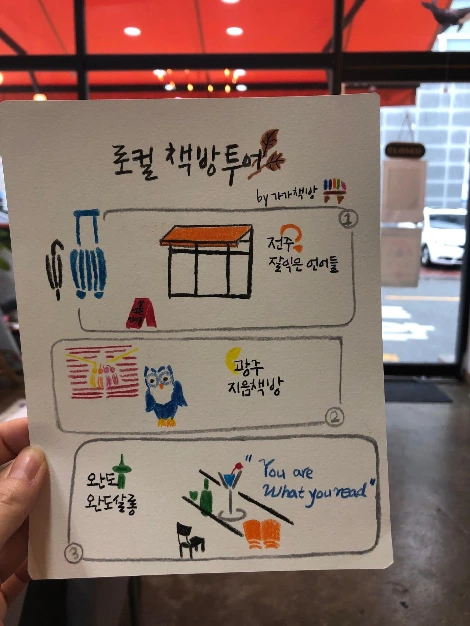 로컬 책방투어
by 가가책방
①
전주
잘익은 언어들
광주
지음책방
②
완도
완도살롱
"You are
What you read"
③